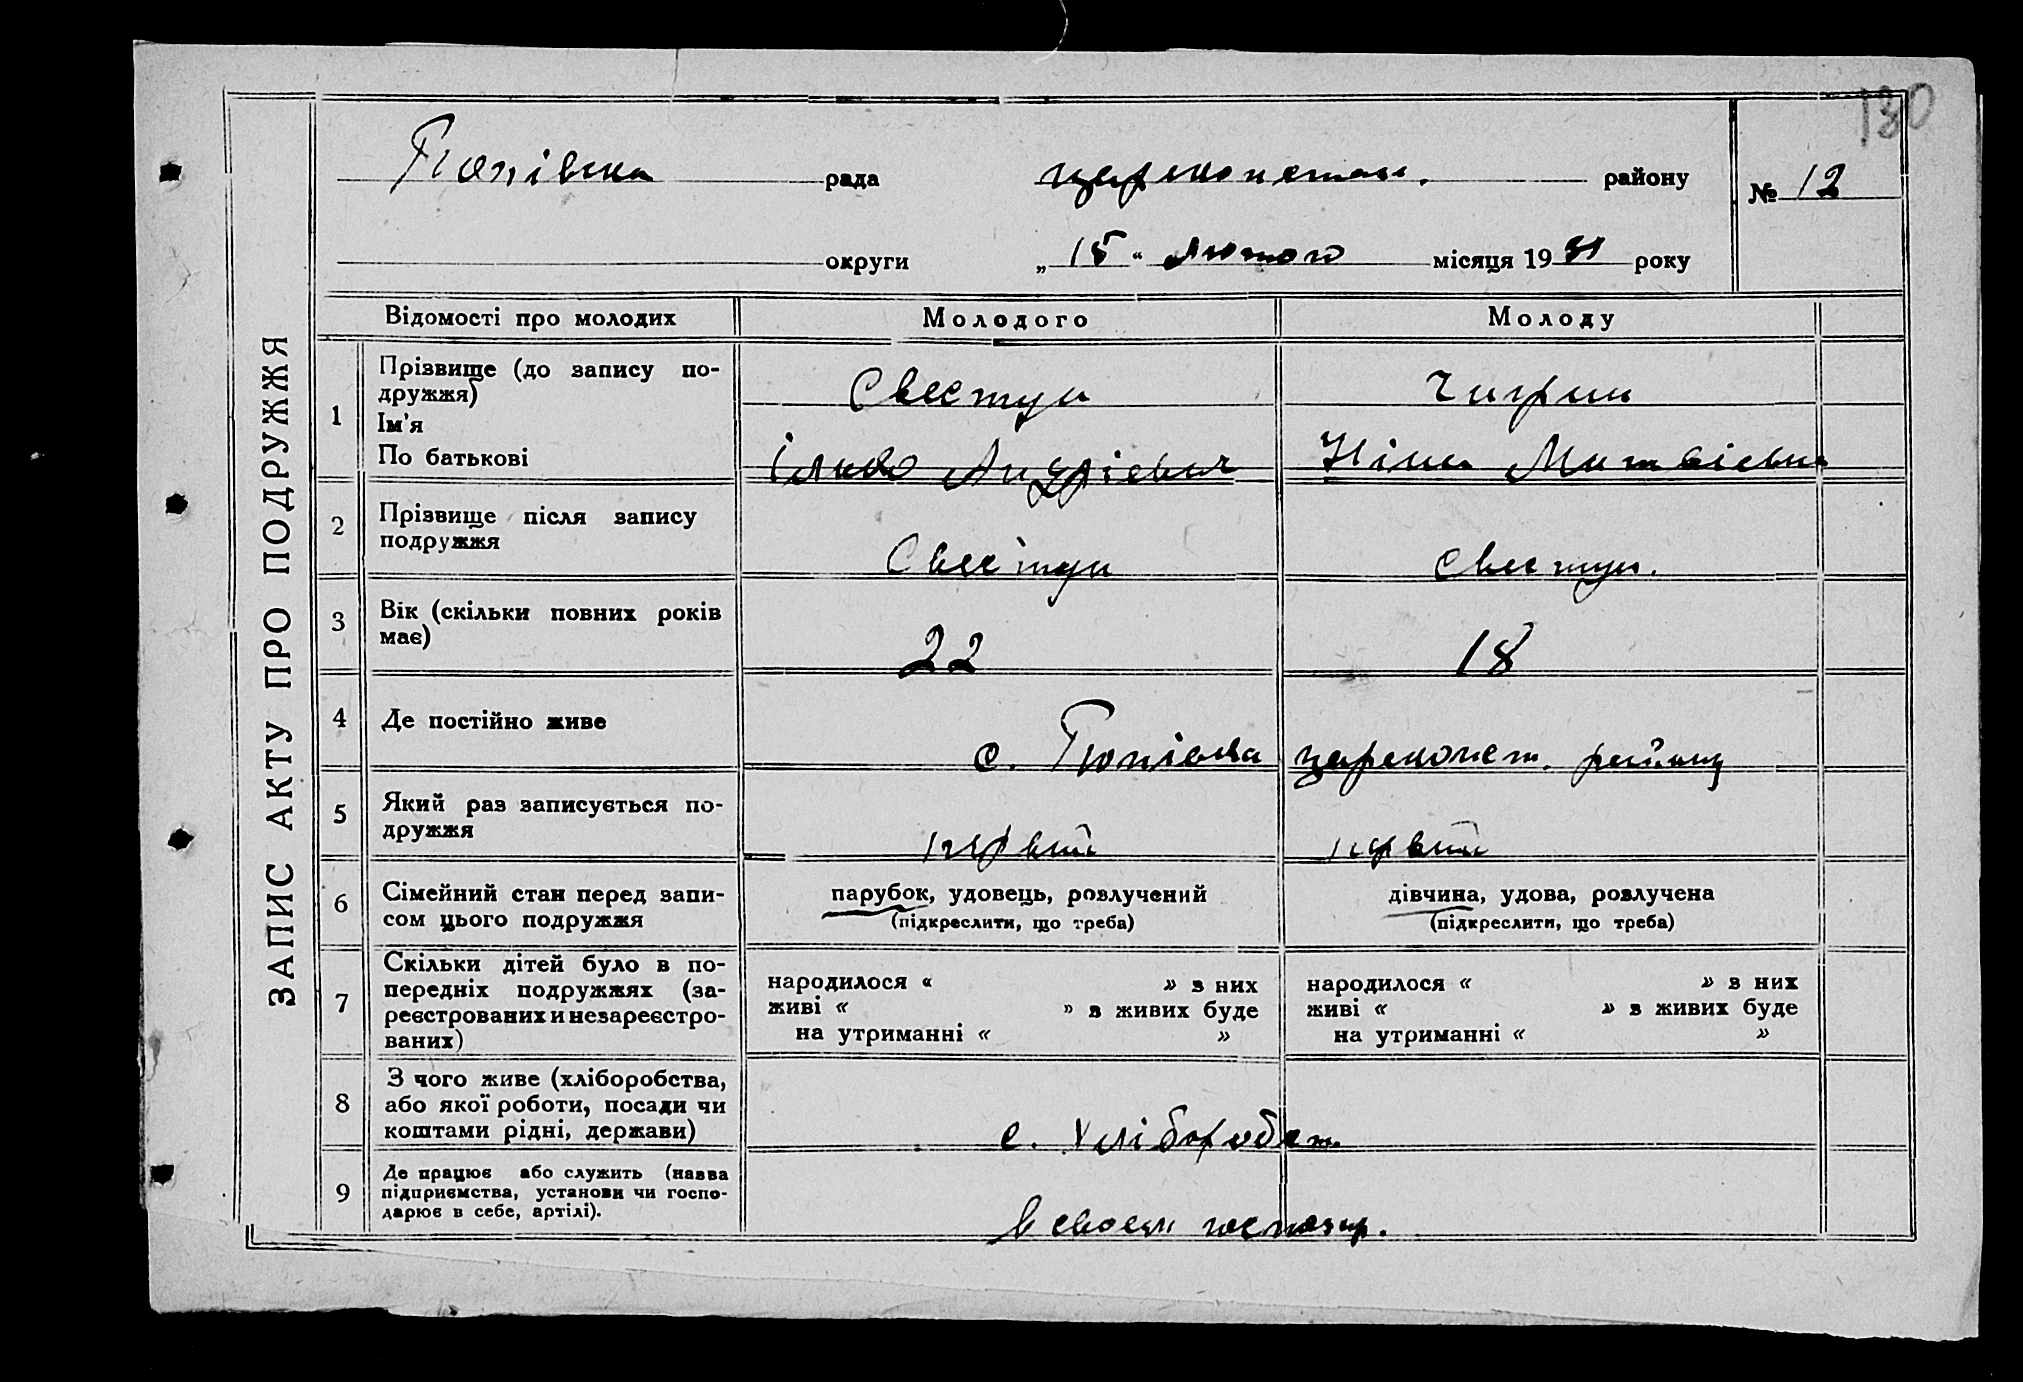 130
Попівська рада царекостан. району № 12
округи „15“ Лютого місяця 1931 року
ЗАПИС АКТУ ПРО ПОДРУЖЖЯ
Відомості про молодих Молодого Молоду
1 Прізвище (до запису по-
дружжя) Свестун Чигрин
Ім'я
По батькові Ілько Андрієвич Ніна Матвієвна
2 Прізвище після запису
подружжя Свестун Свестун.
3 Вік (скільки повних років
має) 22 18
4 Де постійно живе с. Попівка району
5 Який раз записується по-
дружжя первий первий
6 Сімейний стан перед запи-
сом цього подружжя
парубок, удовець, розлучений дівчина, удова, розлучена
(підкреслити, що треба) (підкреслити, що треба)
7 Скільки дітей було в по-
передніх подружжях (за-
реєстрованих и незареєстро-
ваних)
народилося « » з них
живі « » в живих буде
на утриманні « »
народилося « » з них
живі « » в живих буде
на утриманні « »
8 З чого живе (хліборобства,
або якої роботи, посади чи
коштами рідні, держави) с. хліборобст.
9 Де працює або служить (назва
підприємства, установи чи госпо-
дарює в себе, артілі). в своем господар.